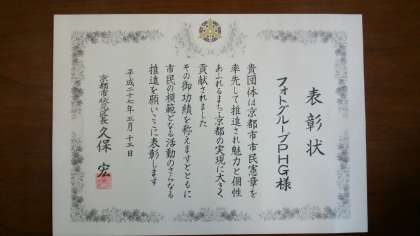 表彰状
フォトグループPHG様
貴団体は京都市市民憲章を
率先して推進され魅力と個性
あふれるまち京都の実現に大きく
貢献されました
その御功績を称えますとともに
市民の模範となる活動のさらなる
推進を願いここに表彰します
平成二十七年三月十三日
京都市伏見区長 久保 宏